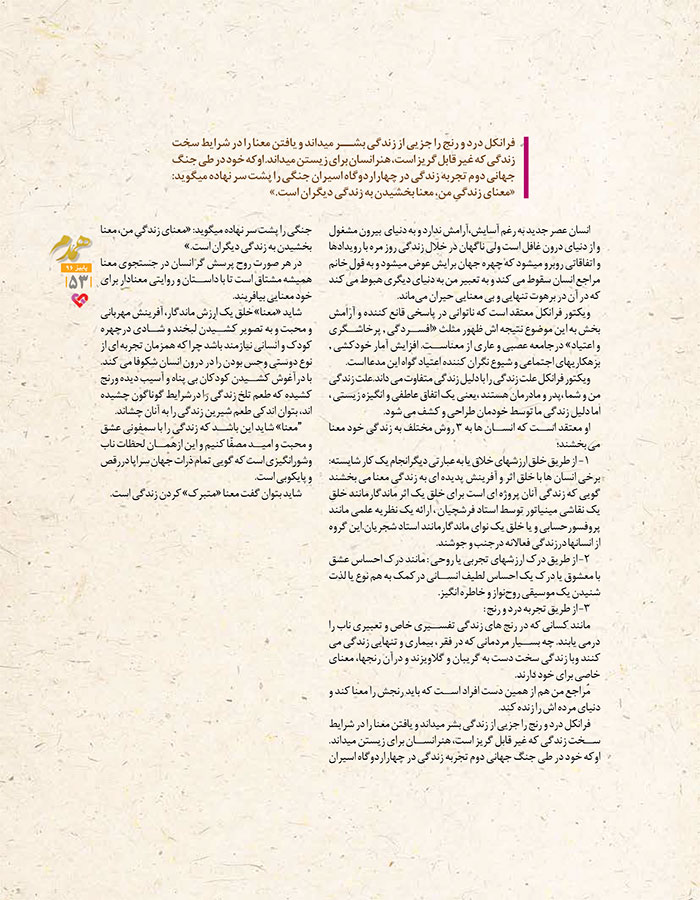 فرانکل درد و رنج را جزیی از زندگی بشـــر میداند و یافتن معنا را در شرایط سخت
زندگی که غیر قابل گریز است، هنر انسان برای زیستن میداند. او که خود در طی جنگ
جهانی دوم تجربه زندگی در چهار اردوگاه اسیران جنگی را پشت سر نهاده میگوید:
«معنای زندگیِ من، معنا بخشیدن به زندگی دیگران است.»
انسان عصر جدید به رغم آسایش، آرامش ندارد و به دنیای بیرون مشغول
و از دنیای درون غافل است ولی ناگهان در خلال زندگی روز مره با رویدادها
و اتفاقاتی روبرو میشود که چهره جهان برایش عوض میشود و به قول خانم
مراجع انسان سقوط می کند و به تعبیر من به دنیای دیگری هبوط می کند
که در آن در برهوت تنهایی و بی معنایی حیران می ماند.
ویکتور فرانکل معتقد است که ناتوانی در پاسخی قانع کننده و آرامش
بخش به این موضوع نتیجه اش ظهور مثلث «افسـردگی ، پرخاشـگری
و اعتیاد» در جامعه عصبی و عاری از معناست. افزایش آمار خودکشی ،
بزهکاریهای اجتماعی و شیوع نگران کننده اعتیاد گواه این مدعا است.
ویکتور فرانکل علت زندگی را با دلیل زندگی متفاوت می داند. علت زندگی
من و شما، پدر و مادرمان هستند، یعنی یک اتفاق عاطفی و انگیزه زیستی ،
اما دلیل زندگی ما توسط خودمان طراحی و کشف می شود.
او معتقد اسـت که انسـان ها به ۳ روش مختلف به زندگی خود معنا
می بخشند:
۱- از طریق خلق ارزشهای خلاق یا به عبارتی دیگر انجام یک کار شایسته:
برخی انسان ها با خلق اثر و آفرینش پدیده ای به زندگی معنا می بخشند
گویی که زندگی آنان پروژه ای است برای خلق یک اثر ماندگار مانند خلق
یک نقاشی مینیاتور توسط استاد فرشچیان ، ارائه یک نظریه علمی مانند
پروفسور حسابی و یا خلق یک نوای ماندگار مانند استاد شجریان. این گروه
از انسانها در زندگی فعالانه در جنب و جوشند.
۲- از طریق درک ارزشهای تجربی یا روحی : مانند درک احساس عشق
با معشوق یا درک یک احساس لطیف انسـانی در کمک به هم نوع یا لذت
شنیدن یک موسیقی روح‌نواز و خاطره انگیز.
۳- از طریق تجربه درد و رنج:
مانند کسانی که در رنج های زندگی تفسـیری خاص و تعبیری ناب را
درمی یابند. چه بسـیار مردمانی که در فقر ، بیماری و تنهایی زندگی می
کنند و با زندگی سخت دست به گریبان و گلاویزند و در آن رنجها، معنای
خاصی برای خود دارند.
مُراجع من هم از همین دست افراد است که باید رنجش را معنا کند و
دنیای مرده اش را زنده کند.
فرانکل درد و رنج را جزیی از زندگی بشر میداند و یافتن معنا را در شرایط
سـخت زندگی که غیر قابل گریز است، هنر انسان برای زیستن میداند.
او که خود در طی جنگ جهانی دوم تجربه زندگی در چهار اردوگاه اسیران
جنگی را پشت سر نهاده میگوید: «معنای زندگیِ من، معنا
بخشیدن به زندگی دیگران است.»
در هر صورت روح پرسش گر انسان در جستجوی معنا
همیشه مشتاق است تا با داستان و روایتی معنادار برای
خود معنایی بیافریند.
شاید «معنا» خلق یک ارزش ماندگار، آفرینش مهربانی
و محبت و به تصویر کشـیدن لبخند و شـادی در چهره
کودک و انسانی نیازمند باشد چرا که همزمان تجربه ای از
نوع دوستی وحس بودن را در درون انسان شکوفا می کند.
با در آغوش کشـیدن کودکان بی پناه و آسیب دیده ورنج
کشیده که طعم تلخ زندگی را در شرایط گوناگون چشیده
اند، بتوان اندکی طعم شیرین زندگی را به آنان چشاند.
"معنا» شاید این باشد که زندگی را با سمفونی عشق
و محبت و امیـد مصفّا کنیم و این از همان لحظات ناب
و شورانگیزی است که گویی تمام ذرات جهان سراپا در رقص
و پایکوبی است.
شاید بتوان گفت معنا «متبرک» کردن زندگی است.
همدم
پاییز ۹۶
۵۳